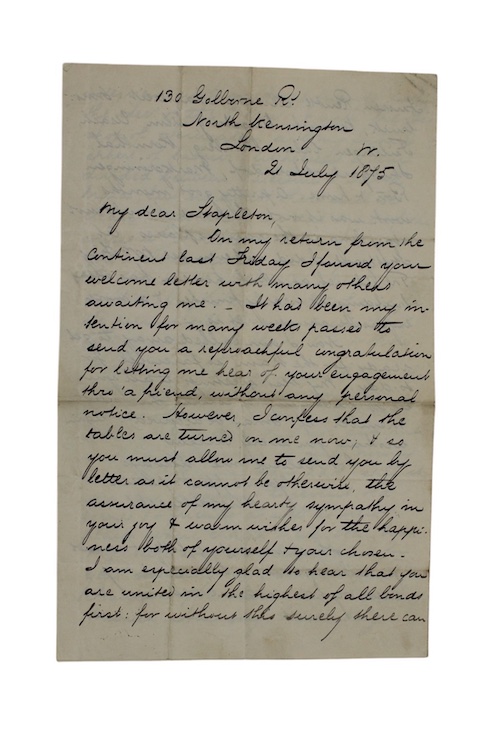 130 Golborne Rd
North Kensington
London W.
21 July 1875
My dear Stapleton,
On my return from the
Continent last Friday I found your
welcome letter with many others
awaiting me. – It had been my in-
tention for many weeks passed to
send you a reproachful congratulation
for letting me hear of your engagement
thro' a friend, without any personal
notice. However, I confess that the
tables are turned on me now; & so
you must allow me to send you by
letter as it cannot be otherwise, the
assurance of my hearty sympathy in
your joy & warm wishes for the happi-
ness both of yourself & your chosen –
I am especially glad to hear that you
are united in the highest of all bonds
first: for without this surely there can